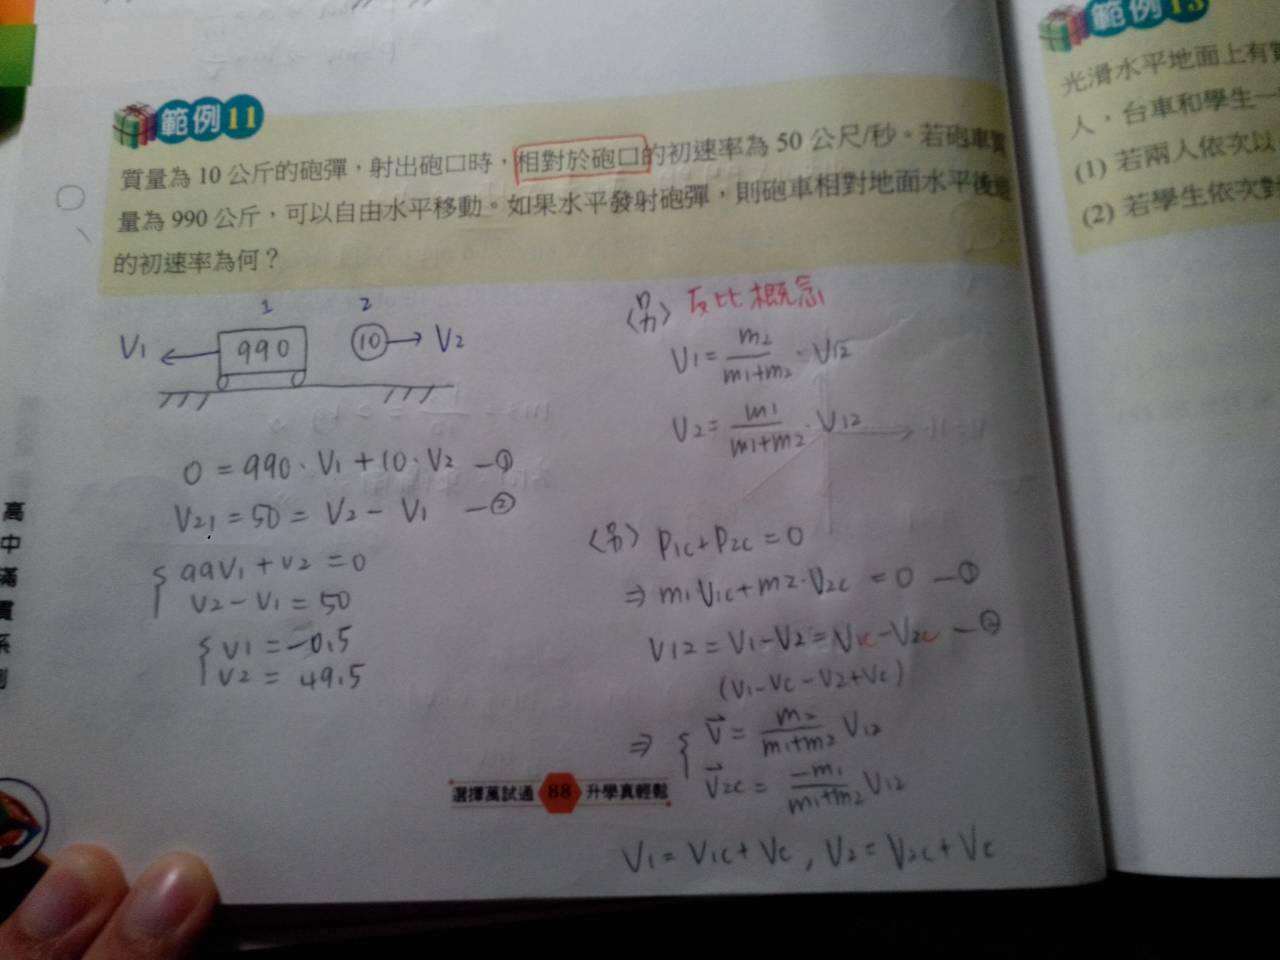 範例11
質量為 10 公斤的砲彈,射出砲口時,相對於砲口的初速率為 50 公尺/秒。若砲車質
量為 990 公斤,可以自由水平移動。如果水平發射砲彈,則砲車相對地面水平後退
的初速率為何?
1 2
V1 990 10 V2
0 = 990·V1+10·V2 —①
V21 = 50 = V2 - V1 —②
99V1 + V2 = 0
V2 - V1 = 50
V1 = -0.5
V2 = 49.5
<另> 反比概念
V1 = m2/(m1+m2) · V12
V2 = m1/(m1+m2) · V12
<另> P1c+P2c = 0
⇒ m1V1c+m2·V2c = 0 —①
V12 = V1-V2 = V1c-V2c —②
(V1-Vc-V2+Vc)
⇒ { V⃗ = m2/(m1+m2) V12
V⃗2c = -m1/(m1+m2) V12
V1 = V1c + Vc , V2 = V2c + Vc
選擇萬試通 88 升學真輕鬆
高中滿貫系列
範例13
光滑水平地面上有
人,台車和學生一
(1) 若兩人依次以
(2) 若學生依次對